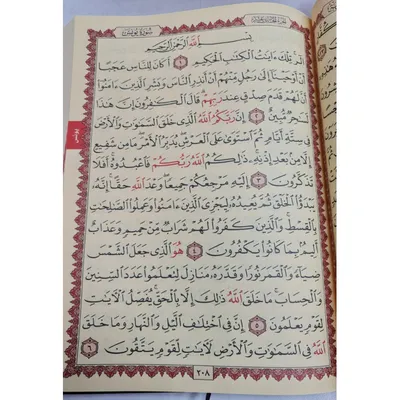 سورة يونس
الجزء الحادي عشر
بِسْمِ اللَّهِ الرَّحْمَٰنِ الرَّحِيمِ
الٓرۚ تِلْكَ ءَايَٰتُ ٱلْكِتَٰبِ ٱلْحَكِيمِ ١ أَكَانَ لِلنَّاسِ عَجَبًا
أَنْ أَوْحَيْنَآ إِلَىٰ رَجُلٍ مِّنْهُمْ أَنْ أَنذِرِ ٱلنَّاسَ وَبَشِّرِ ٱلَّذِينَ ءَامَنُوٓا۟
أَنَّ لَهُمْ قَدَمَ صِدْقٍ عِندَ رَبِّهِمْ ۗ قَالَ ٱلْكَٰفِرُونَ إِنَّ هَٰذَا
لَسَٰحِرٌ مُّبِينٌ ٢ إِنَّ رَبَّكُمُ ٱللَّهُ ٱلَّذِى خَلَقَ ٱلسَّمَٰوَٰتِ وَٱلْأَرْضَ
فِى سِتَّةِ أَيَّامٍ ثُمَّ ٱسْتَوَىٰ عَلَى ٱلْعَرْشِ ۖ يُدَبِّرُ ٱلْأَمْرَ ۖ مَا مِن شَفِيعٍ
إِلَّا مِنۢ بَعْدِ إِذْنِهِۦ ۚ ذَٰلِكُمُ ٱللَّهُ رَبُّكُمْ فَٱعْبُدُوهُ ۚ أَفَلَا
تَذَكَّرُونَ ٣ إِلَيْهِ مَرْجِعُكُمْ جَمِيعًا ۖ وَعْدَ ٱللَّهِ حَقًّا ۚ إِنَّهُۥ
يَبْدَؤُا۟ ٱلْخَلْقَ ثُمَّ يُعِيدُهُۥ لِيَجْزِىَ ٱلَّذِينَ ءَامَنُوا۟ وَعَمِلُوا۟ ٱلصَّٰلِحَٰتِ
بِٱلْقِسْطِ ۚ وَٱلَّذِينَ كَفَرُوا۟ لَهُمْ شَرَابٌ مِّنْ حَمِيمٍ وَعَذَابٌ
أَلِيمٌۢ بِمَا كَانُوا۟ يَكْفُرُونَ ٤ هُوَ ٱلَّذِى جَعَلَ ٱلشَّمْسَ
ضِيَآءً وَٱلْقَمَرَ نُورًا وَقَدَّرَهُۥ مَنَازِلَ لِتَعْلَمُوا۟ عَدَدَ ٱلسِّنِينَ
وَٱلْحِسَابَ ۚ مَا خَلَقَ ٱللَّهُ ذَٰلِكَ إِلَّا بِٱلْحَقِّ ۚ يُفَصِّلُ ٱلْءَايَٰتِ
لِقَوْمٍ يَعْلَمُونَ ٥ إِنَّ فِى ٱخْتِلَٰفِ ٱلَّيْلِ وَٱلنَّهَارِ وَمَا خَلَقَ
ٱللَّهُ فِى ٱلسَّمَٰوَٰتِ وَٱلْأَرْضِ لَءَايَٰتٍ لِّقَوْمٍ يَتَّقُونَ ٦
٢٠٨
يونس